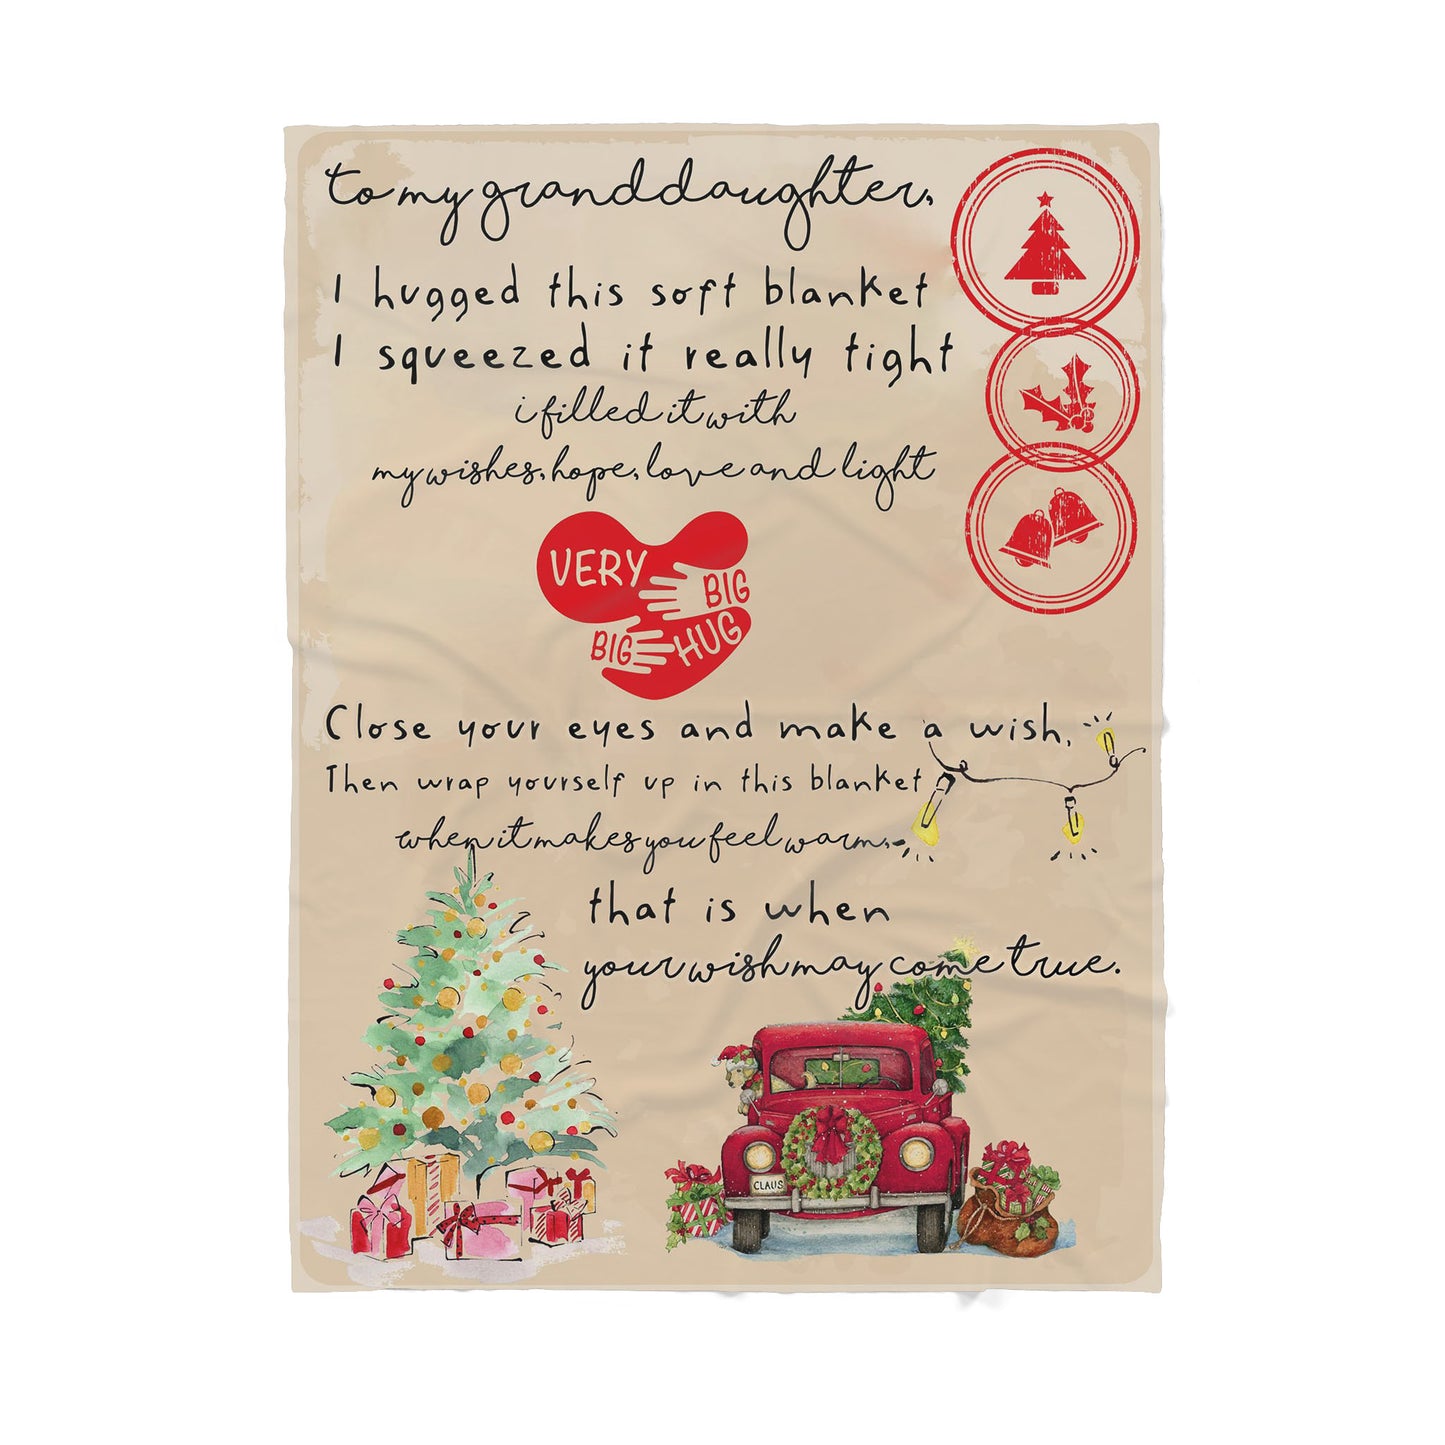 to my granddaughter,
I hugged this soft blanket
I squeezed it really tight
i filled it with
my wishes, hope, love and light
VERY
BIG
BIG
HUG
Close your eyes and make a wish,
Then wrap yourself up in this blanket
when it makes you feel warm,
that is when
your wish may come true.
CLAUS